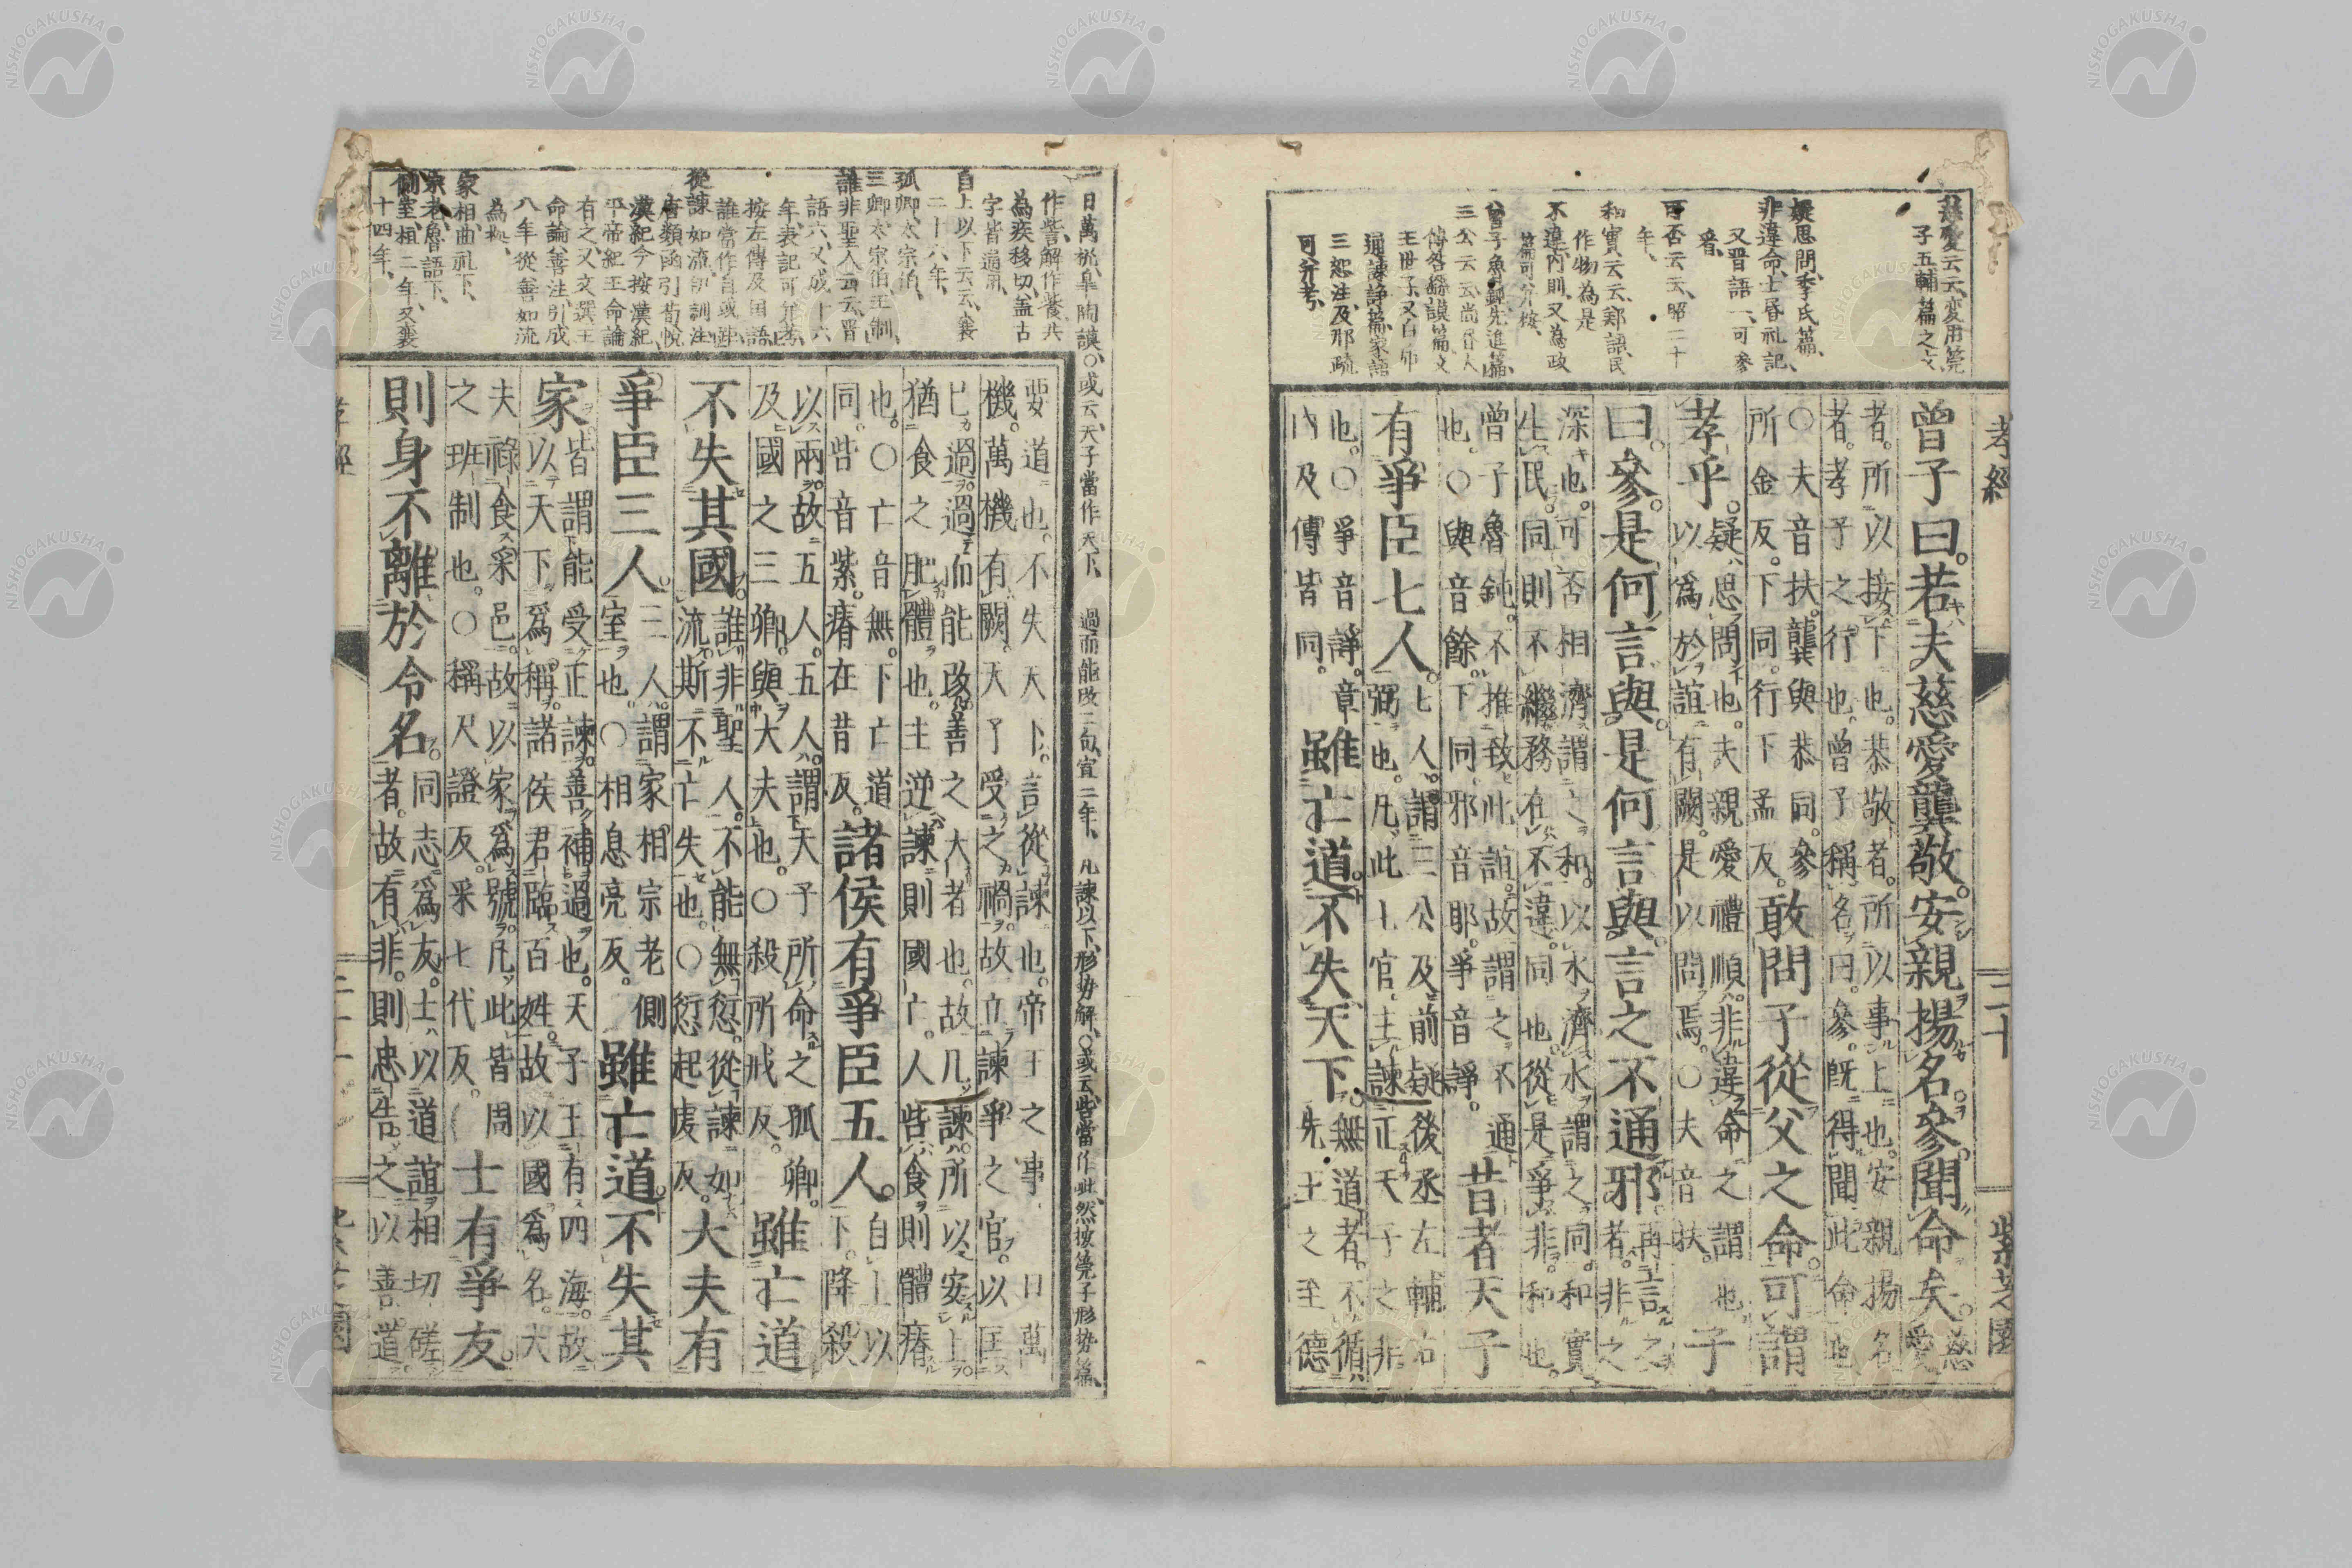 孝經
三十
紫芝園
慈愛云云、変用筦
子五輔篇之文
疑思問、季氏篇、
非違命、士昏礼記、
又晋語一、可参
看、
可否云云、昭二十
年、
和實云云、鄭語、民
作物為是
不違、内則、又為政
篇可并按、
曾子魯鈍、先進篇、
三公云云尚書大
傳各繇謨篇文
王世子、又白乕
通諫諍篇、家語
三恕注、及邢疏
可并考、
曾子曰。若夫慈愛龔敬。安親揚名。參聞命矣。慈
愛
者。所以接下也。恭敬者。所以事上也。安親揚名
者。孝子之行也。曾子稱名曰。參。既得聞此命也
○夫音扶。龔與恭同。參
所金反。下同。行下孟反。
敢問子從父之命。可謂
孝乎。
疑思問也。夫親愛禮順。非違命之謂也。
以爲於誼有闕。是以問焉。○夫音扶。
子
曰。參。是何言與。是何言與。言之不通邪。
再言之
者。非之
深也。可否相濟。謂之和。以水濟水。謂之同。和實
生民。同則不繼。務在不違。同也。從是爭非。和也。
曾子魯鈍。不推致此誼。故謂之不通
也。○與音餘。下同。邪音耶。爭音諍。
昔者天子
有爭臣七人。
七人。謂三公及前疑後丞左輔右
弼也。凡此七官。主諫正天子之非
也。○爭音諍。章
内及傳皆同。
雖亡道。不失天下。
無道者。不循
先王之至德
一日萬機、臯陶謨。○或云、天子當作天下、 過而能改二句、宣二年、 凡諫以下、形勢解、○或云、呰當作此、然按筦子形勢篇、
作訾、解作餐、共
為疾移切、蓋古
字皆通用、
自上以下云云、襄
二十六年、
孤卿、太宗伯、
三卿、太宗伯、王制、
誰非聖人云云、晋
語六、又成十六
年、表記可并考、
按左傳及国語
誰當作自或非、
從諫如流、訓註
唐類函引荀悅
漢紀今按漢紀、
平帝紀王命論
有之、又文選王
命論、善注、引成
八年從善如流
為拠、
家相、曲礼下、
宗老、魯語下、
側室、桓二年、又襄
十四年、
要道也。不失天下。言從諫也。帝王之事。一日萬
機。萬機有闕。天子受之禍。故立諫爭之官。以匡
己過。過而能改。善之大者也。故凡諫。所以安上。
猶食之肥體也。主逆諫則國亡。人呰食。則體瘠
也。○亡音無。下亡道
同。呰音紫。瘠在昔反。
諸侯有爭臣五人。
自上以
下。降殺
以兩。故五人。五人。謂天子所命之孤卿。
及國之三卿。與大夫也。○殺所戒反。
雖亡道
不失其國。
誰非聖人。不能無愆。從諫如
流。斯不亡失也。○愆起虔反。
大夫有
爭臣三人。
三人。謂家相宗老側
室也。○相息亮反。
雖亡道。不失其
家。
皆謂能受正諫。善補過也。天子王有四海。故
以天下爲稱。諸侯君臨百姓。故以國爲名。大
夫祿食采邑。故以家爲號。凡此皆周
之班制也。○稱尺證反。采七代反。
士有爭友。
則身不離於令名。
同志爲友。士以道誼相切磋
者。故有非。則忠告之以善道。
孝經
紫芝園